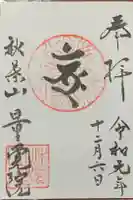 奉拝
令和元年
十二月六日
秋葉山 量覚院